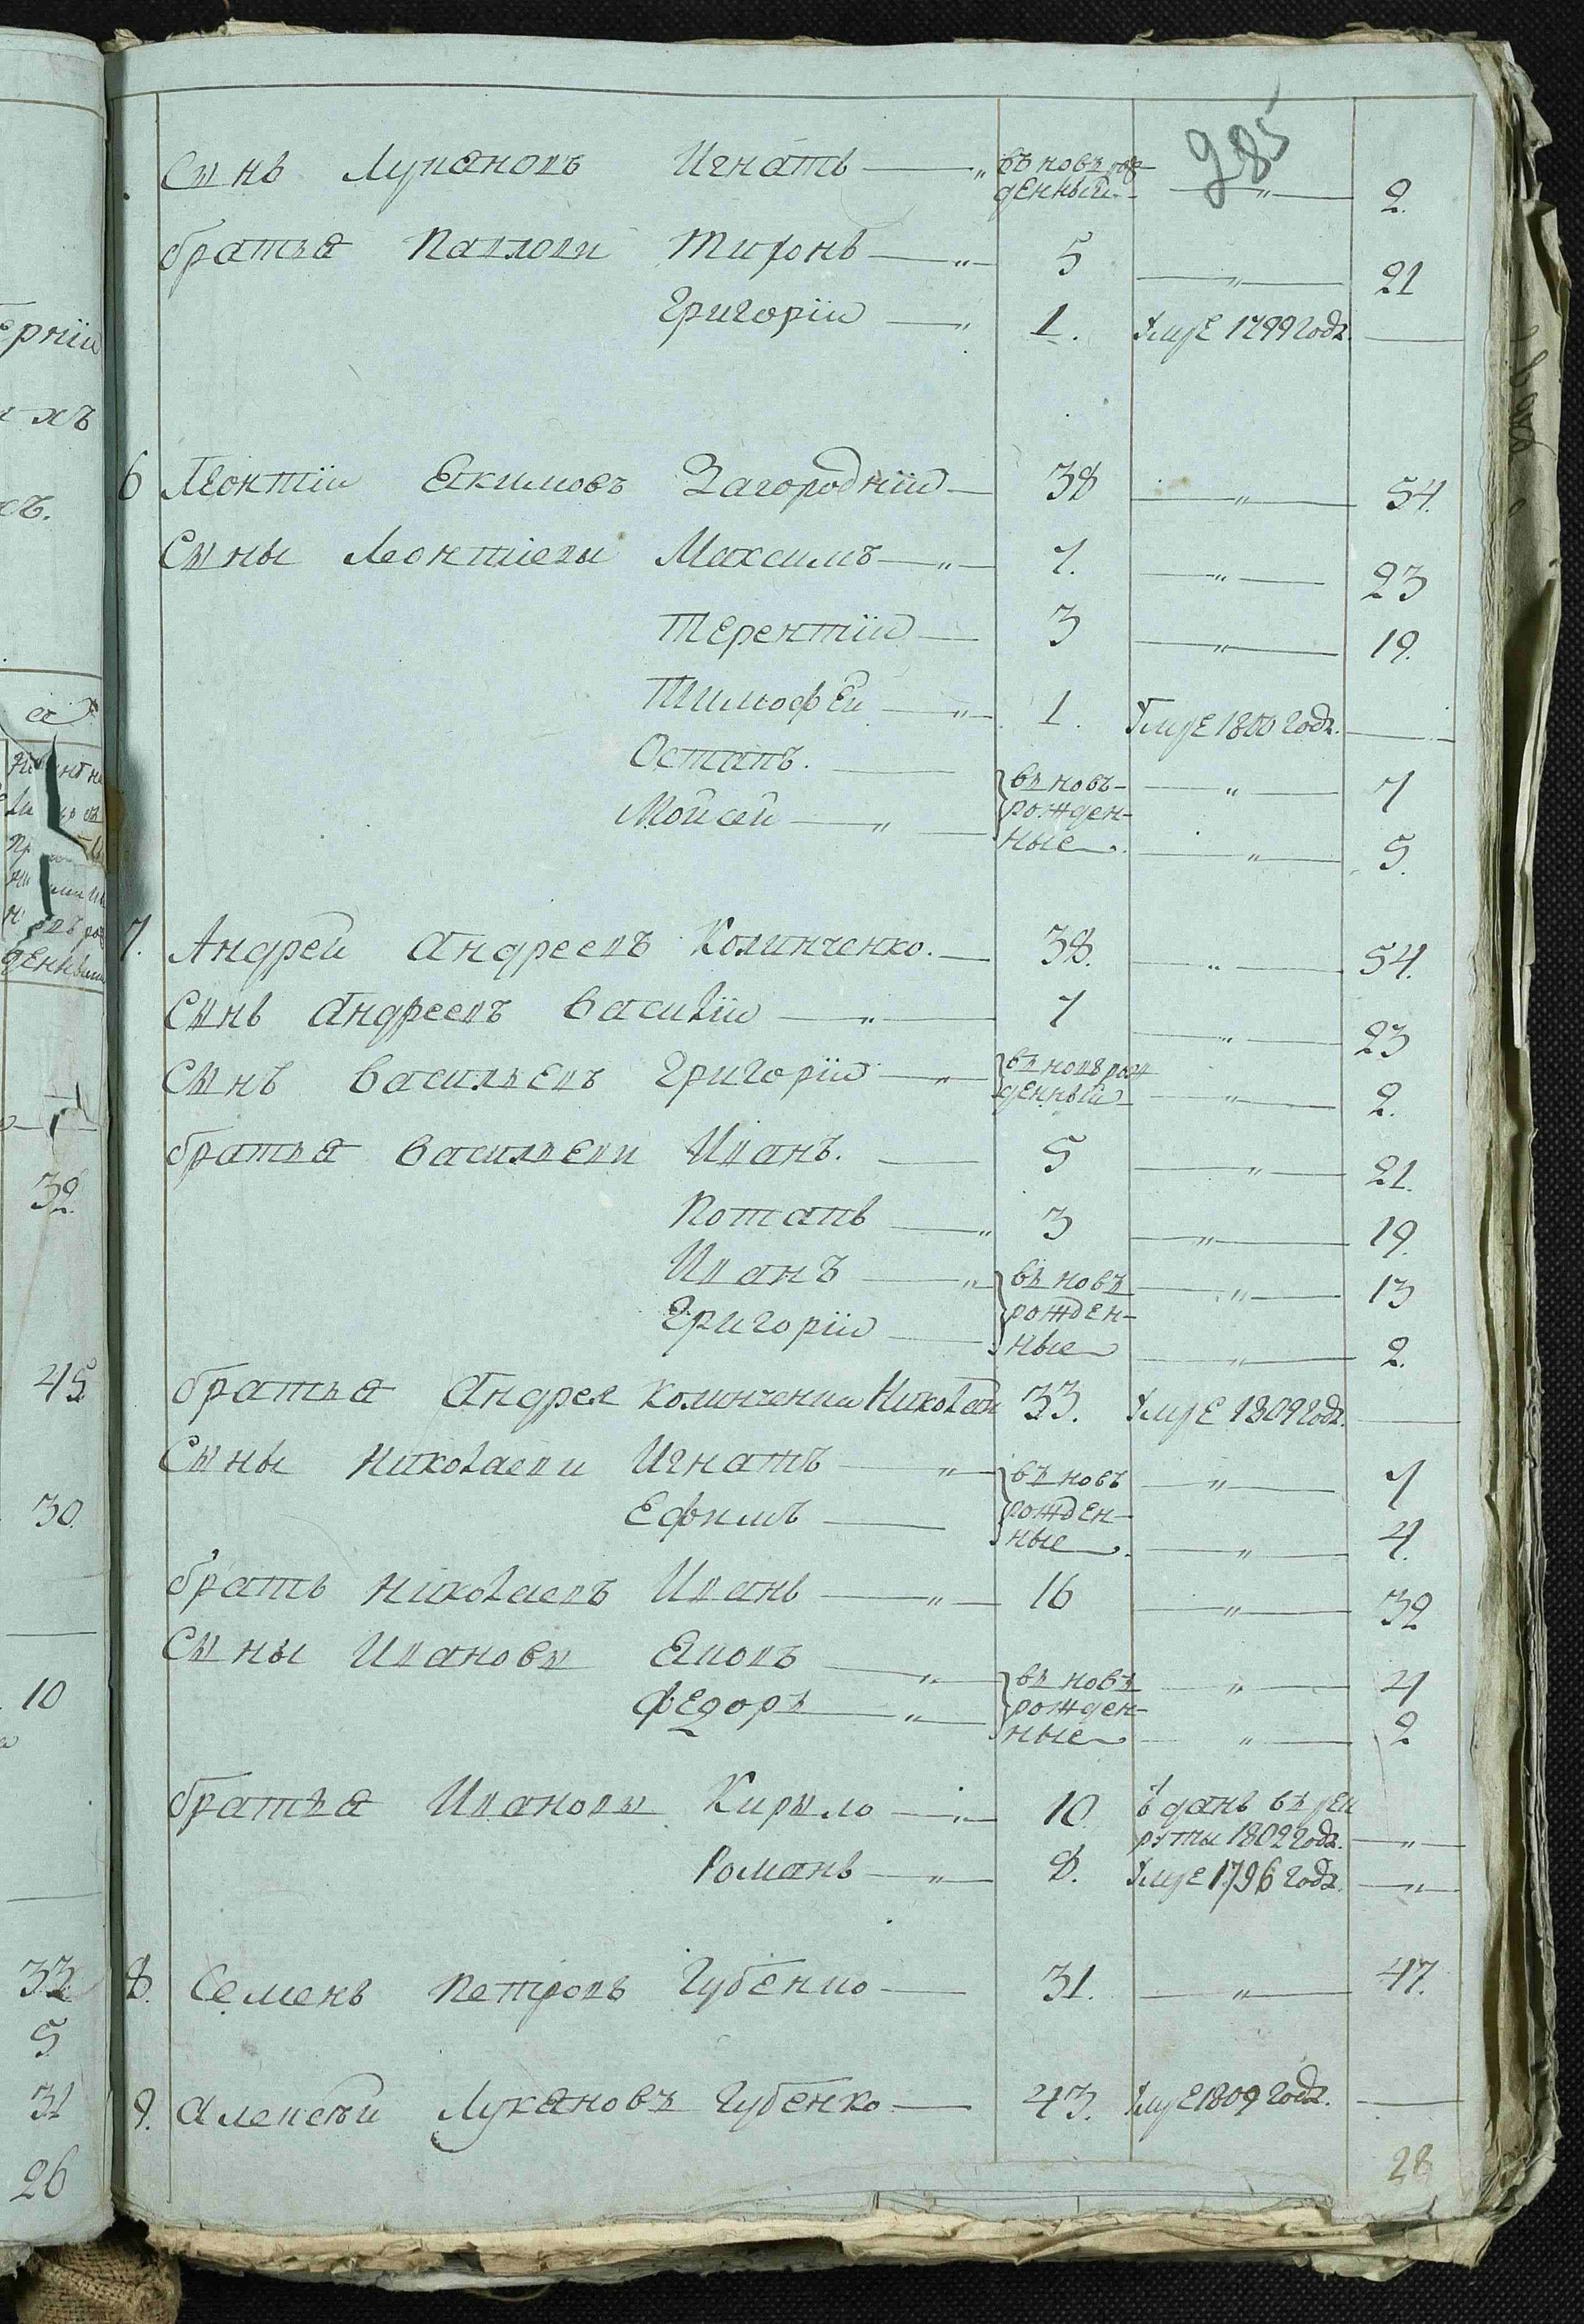 985
Сынъ Лукяновъ Игнатъ — „ въ новъ рож
денный — „ — 2.
братья Павлови Тихонъ — „ — 5 — „ — 21
Григорїй — „ 1. Умре 1799 годꙋ. —
6 Леонтїй Екимовъ Загороднїй — 38 — „ — 54.
Сыны Леонтїевы Максимъ — „ — 7. — „ — 23
Терентїй — 3 — „ — 19.
Тимофей — „ — 1. Умре 1800 годꙋ. —
Остапъ. — въ новъ- — „ — 7
Мойсей — „ — рожден-
ные. — „ — 5.
7. Андрей Андреевъ Колинченко. — 38. — „ — 54.
Сынъ Андреевъ Василїй — „ — 7 — „ — 23
Сынъ Васильевъ Григорїй — „ — въ новъ рож
денный — „ — 2.
братья Васильеви Иванъ. — 5 — „ — 21.
Потапъ — „ 3 — „ — 19.
Иванъ — „ въ новъ — „ — 13
Григорїй — рожден-
ные — „ — 2.
братья Андрея Колинченки Николай 33. Умре 1809 годꙋ. —
Сыны Николаеви Игнатъ — „ — въ новъ — „ — 7
Ефимъ — рожден-
ные. — „ — 4.
братъ Николаевъ Иванъ — „ — 16 — „ — 32
Сыны Ивановы Яковъ — „ — въ новъ — „ — 4
Федоръ — „ — рожден-
ные — „ — 2
братья Ивановы Кирыло — „ — 10. Зданъ въ рек
руты 1802 годꙋ. — „ —
Романъ — „ — 8. Умре 1796 годꙋ. — „ —
8. Семенъ Петровъ Губенко — 31. — „ — 47.
9. Алексѣй Лукяновъ Губенко — 43. Умре 1809 годꙋ. —
28
32.
45.
30.
10
33
5
31
26